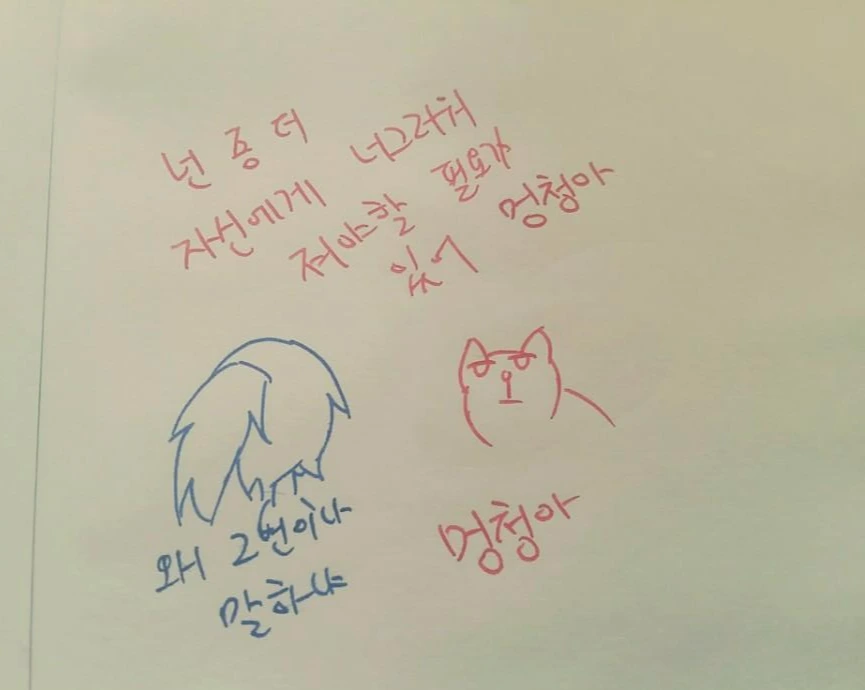 넌 좀 더
자신에게 너그러워
져야할 필요가
있어 멍청아
왜 2번이나
말하냐
멍청아